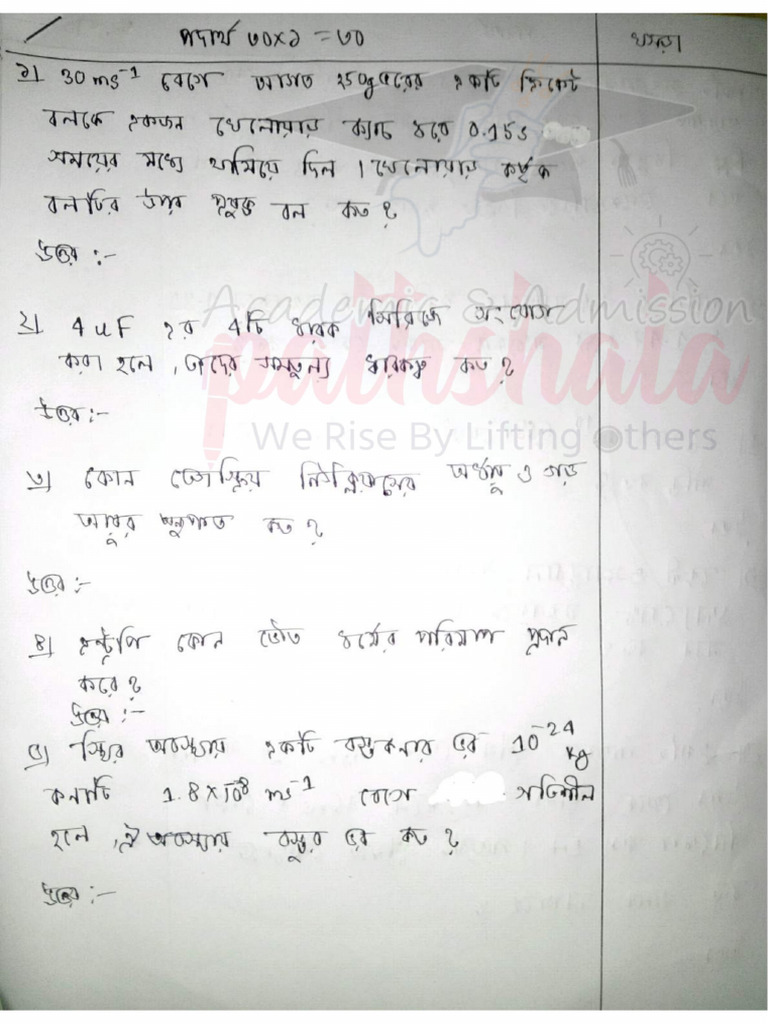 পদার্থ ৩০×১ = ৩০
খসড়া
১| 30 ms⁻¹ বেগে আগত 250g ভরের একটি ক্রিকেট
বলকে একজন খেলোয়ার ক্যাচ ধরে 0.15s
সময়ের মধ্যে থামিয়ে দিল । খেলোয়ার কর্তৃক
বলটির উপর প্রযুক্ত বল কত ?
উত্তর :-
২| 4uF এর 4টি ধারক সিরিজে সংযোগ
করা হলে, তাদের সমতুল্য ধারকত্ব কত ?
উত্তর :-
৩| কোন তেজস্ক্রিয় নিউক্লিয়াসের অর্ধায়ু ও গড়
আয়ুর অনুপাত কত ?
উত্তর :-
৪| এন্ট্রপি কোন ভৌত ধর্মের পরিমাপ প্রদান
করে ?
উত্তর :-
৫| স্থির অবস্থায় একটি বস্তুকনার ভর 10⁻²⁴ kg
কনাটি 1.8×10⁸ ms⁻¹ বেগে গতিশীল
হলে, ঐ অবস্থায় বস্তুর ভর কত ?
উত্তর :-
Academic & Admission
pathshala
We Rise By Lifting Others